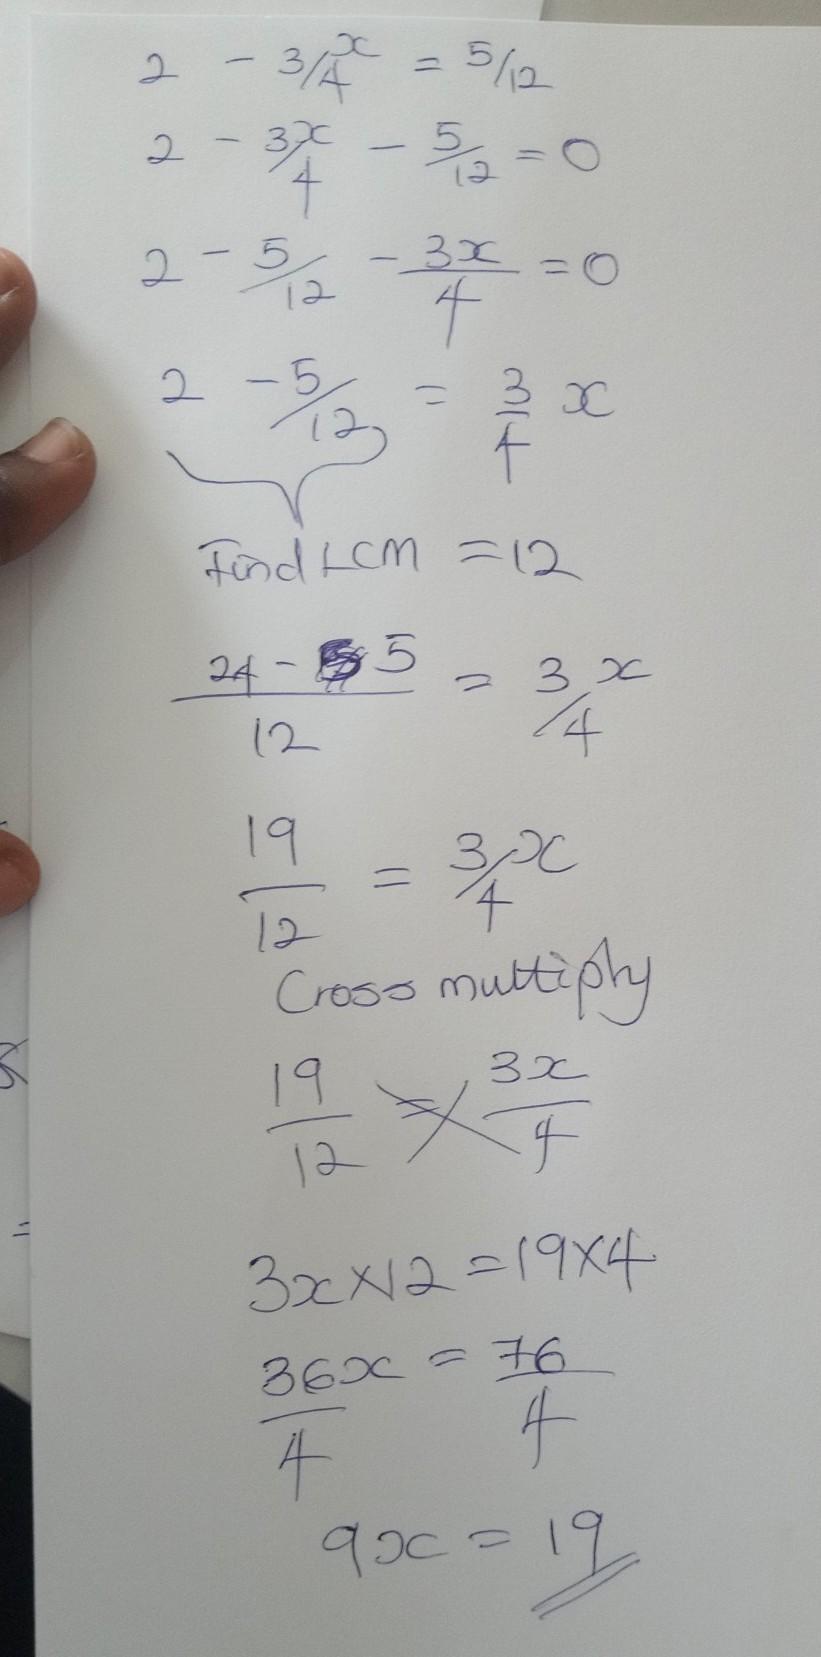 2 - 3/4 x = 5/12
2 - 3x/4 - 5/12 = 0
2 - 5/12 - 3x/4 = 0
2 - 5/12 = 3/4 x
Find LCM = 12
24 - 5/12 = 3/4 x
19/12 = 3/4 x
Cross multiply
19/12 = 3x/4
3x × 12 = 19 × 4
36x/4 = 76/4
9x = 19